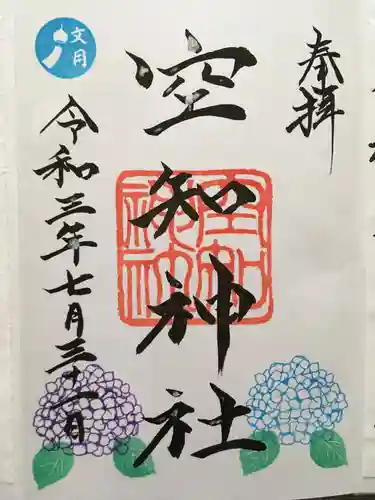 奉拝
空知神社
令和三年七月三十一日
文月